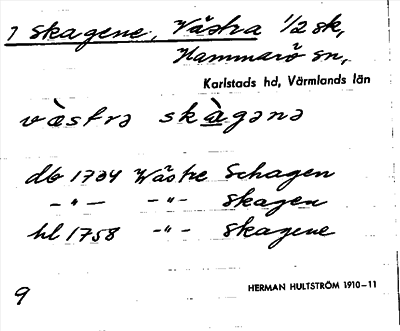 7 Skagene, Västra 1/2 sk,
Hammarö sn,
Karlstads hd, Värmlands län
vàstrə skàgənə
db 1734 Wästre Schagen
– " – – " – skagen
hl 1758 – " – skagene
9
HERMAN HULTSTRÖM 1910–11